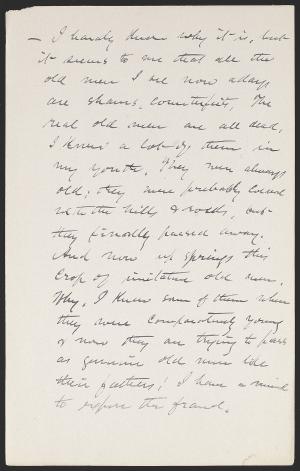 — I hardly know why it is, but
it seems to me that all the
old men I see now adays
are shams, counterfeits. The
real old men are all dead.
I knew a lot of them in
my youth. They were always
old; they were probably coeval
with the hills & rocks, but
they finally passed away.
And now up springs this
crop of imitation old men.
Why, I knew some of them when
they were comparatively young
& now they are trying to pass
as genuine old men like
their fathers! I have a mind
to expose the fraud.